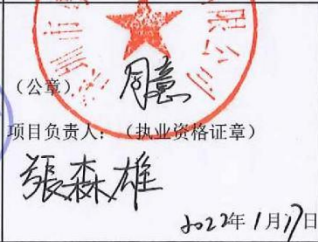 限公司
(公章) 同意
项目负责人：(执业资格证章)
張森雄
2022年1月17日